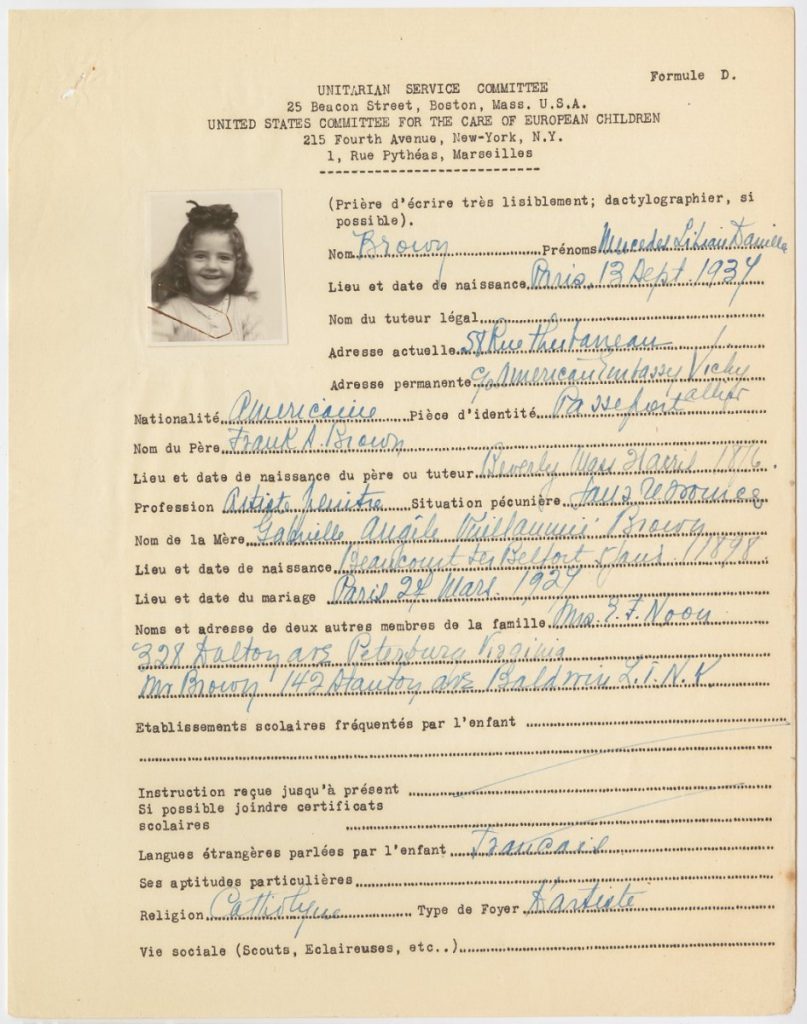 Formule D.
UNITARIAN SERVICE COMMITTEE
25 Beacon Street, Boston, Mass. U.S.A.
UNITED STATES COMMITTEE FOR THE CARE OF EUROPEAN CHILDREN
215 Fourth Avenue, New-York, N.Y.
1, Rue Pythéas, Marseilles
(Prière d'écrire très lisiblement; dactylographier, si
possible).
Nom Brown Prénoms Mercedes Lilian Danielle
Lieu et date de naissance Paris, 13 Sept. 1937
Nom du tuteur légal
Adresse actuelle 58 Rue
Adresse permanente c/o American Embassy Vichy
Allier
Nationalité Americaine Pièce d'identité Passeport
Nom du Père Frank A. Brown
Lieu et date de naissance du père ou tuteur Beverly Mass 1876.
Profession Artiste peintre Situation pécunière Sans
Nom de la Mère Gabrielle Angèle Brown
Lieu et date de naissance Beaucourt Belfort 5 Janv. 1898
Lieu et date du mariage Paris Mars. 1927
Noms et adresse de deux autres membres de la famille Mrs. E. F. Noon
328 Dalton ave Petersburg Virginia
Mr Brown 142 Stanton ave Baldwin L.I. N.Y.
Etablissements scolaires fréquentés par l'enfant
Instruction reçue jusqu'à présent
Si possible joindre certificats
scolaires
Langues étrangères parlées par l'enfant Francais
Ses aptitudes particulières
Religion Catholique Type de Foyer D'artiste
Vie sociale (Scouts, Eclaireuses, etc..)